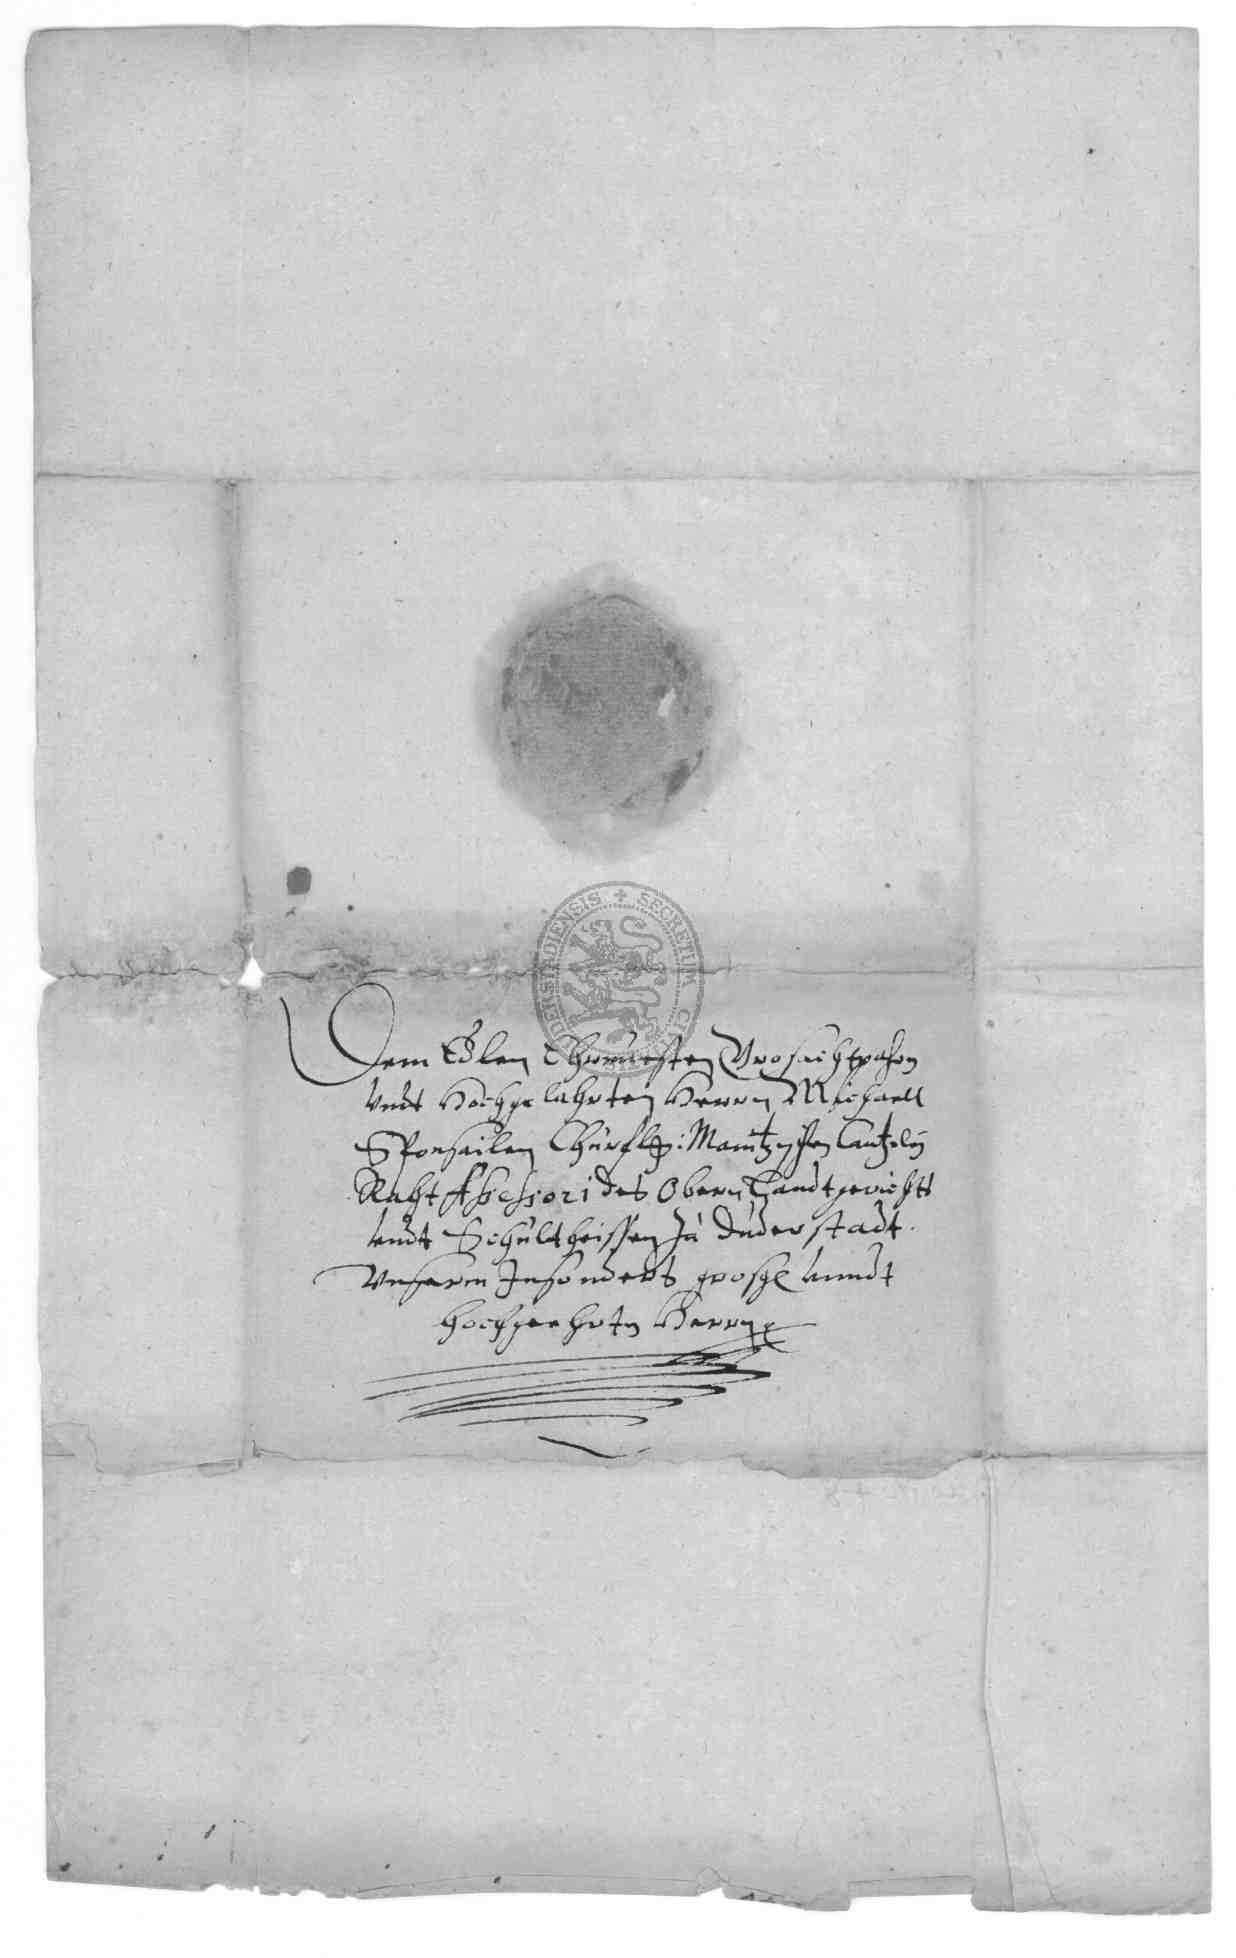 SECRETUM CI DERSTADIENSIS
Dem Edlen Ehrnuesten Grosachtparn
Undt Hochgelahrten Herrn Michaell
Chürfl: Maintzischen Cantzeley
Raht Assessori des Obern Landtgerichts
undt Schultheissen zu Duderstadt.
Unserm Insonders grosg. unndt
hochgeehrten Herrn